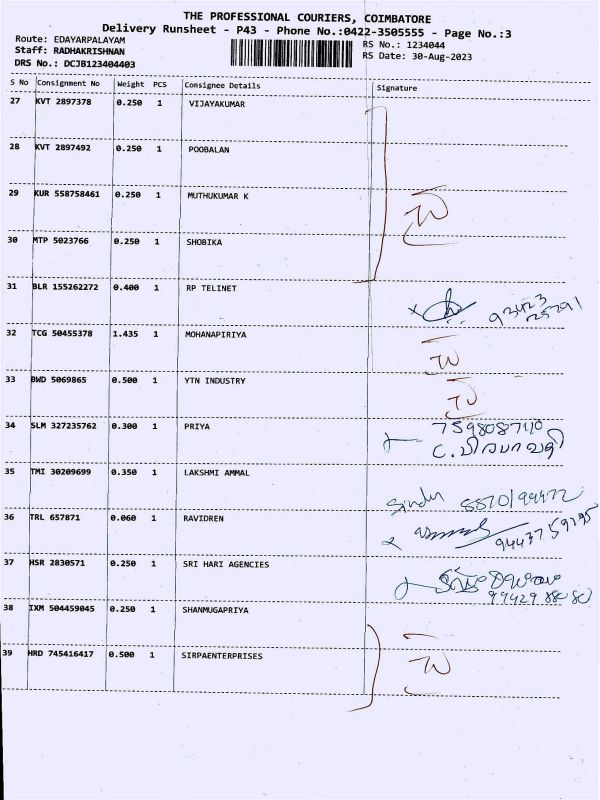 THE PROFESSIONAL COURIERS, COIMBATORE
Delivery Runsheet - P43 - Phone No.:0422-3505555 - Page No.:3
Route: EDAYARPALAYAM
RS No.: 1234044
Staff: RADHAKRISHNAN
RS Date: 30-Aug-2023
DRS No.: DCJB123404403
S No Consignment No Weight PCS Consignee Details Signature
27 KVT 2897378 0.250 1 VIJAYAKUMAR
28 KVT 2897492 0.250 1 POOBALAN
29 KUR 558758461 0.250 1 MUTHUKUMAR K
30 MTP 5023766 0.250 1 SHOBIKA
31 BLR 155262272 0.400 1 RP TELINET
93423
25291
32 TCG 50455378 1.435 1 MOHANAPIRIYA
33 BWD 5069865 0.500 1 YTN INDUSTRY
34 SLM 327235762 0.300 1 PRIYA
7598087110
35 TMI 30209699 0.350 1 LAKSHMI AMMAL
Sindu 8870199472
36 TRL 657871 0.060 1 RAVIDREN
9443759195
37 HSR 2830571 0.250 1 SRI HARI AGENCIES
99429 88080
38 IXM 504459045 0.250 1 SHANMUGAPRIYA
39 HRD 745416417 0.500 1 SIRPAENTERPRISES